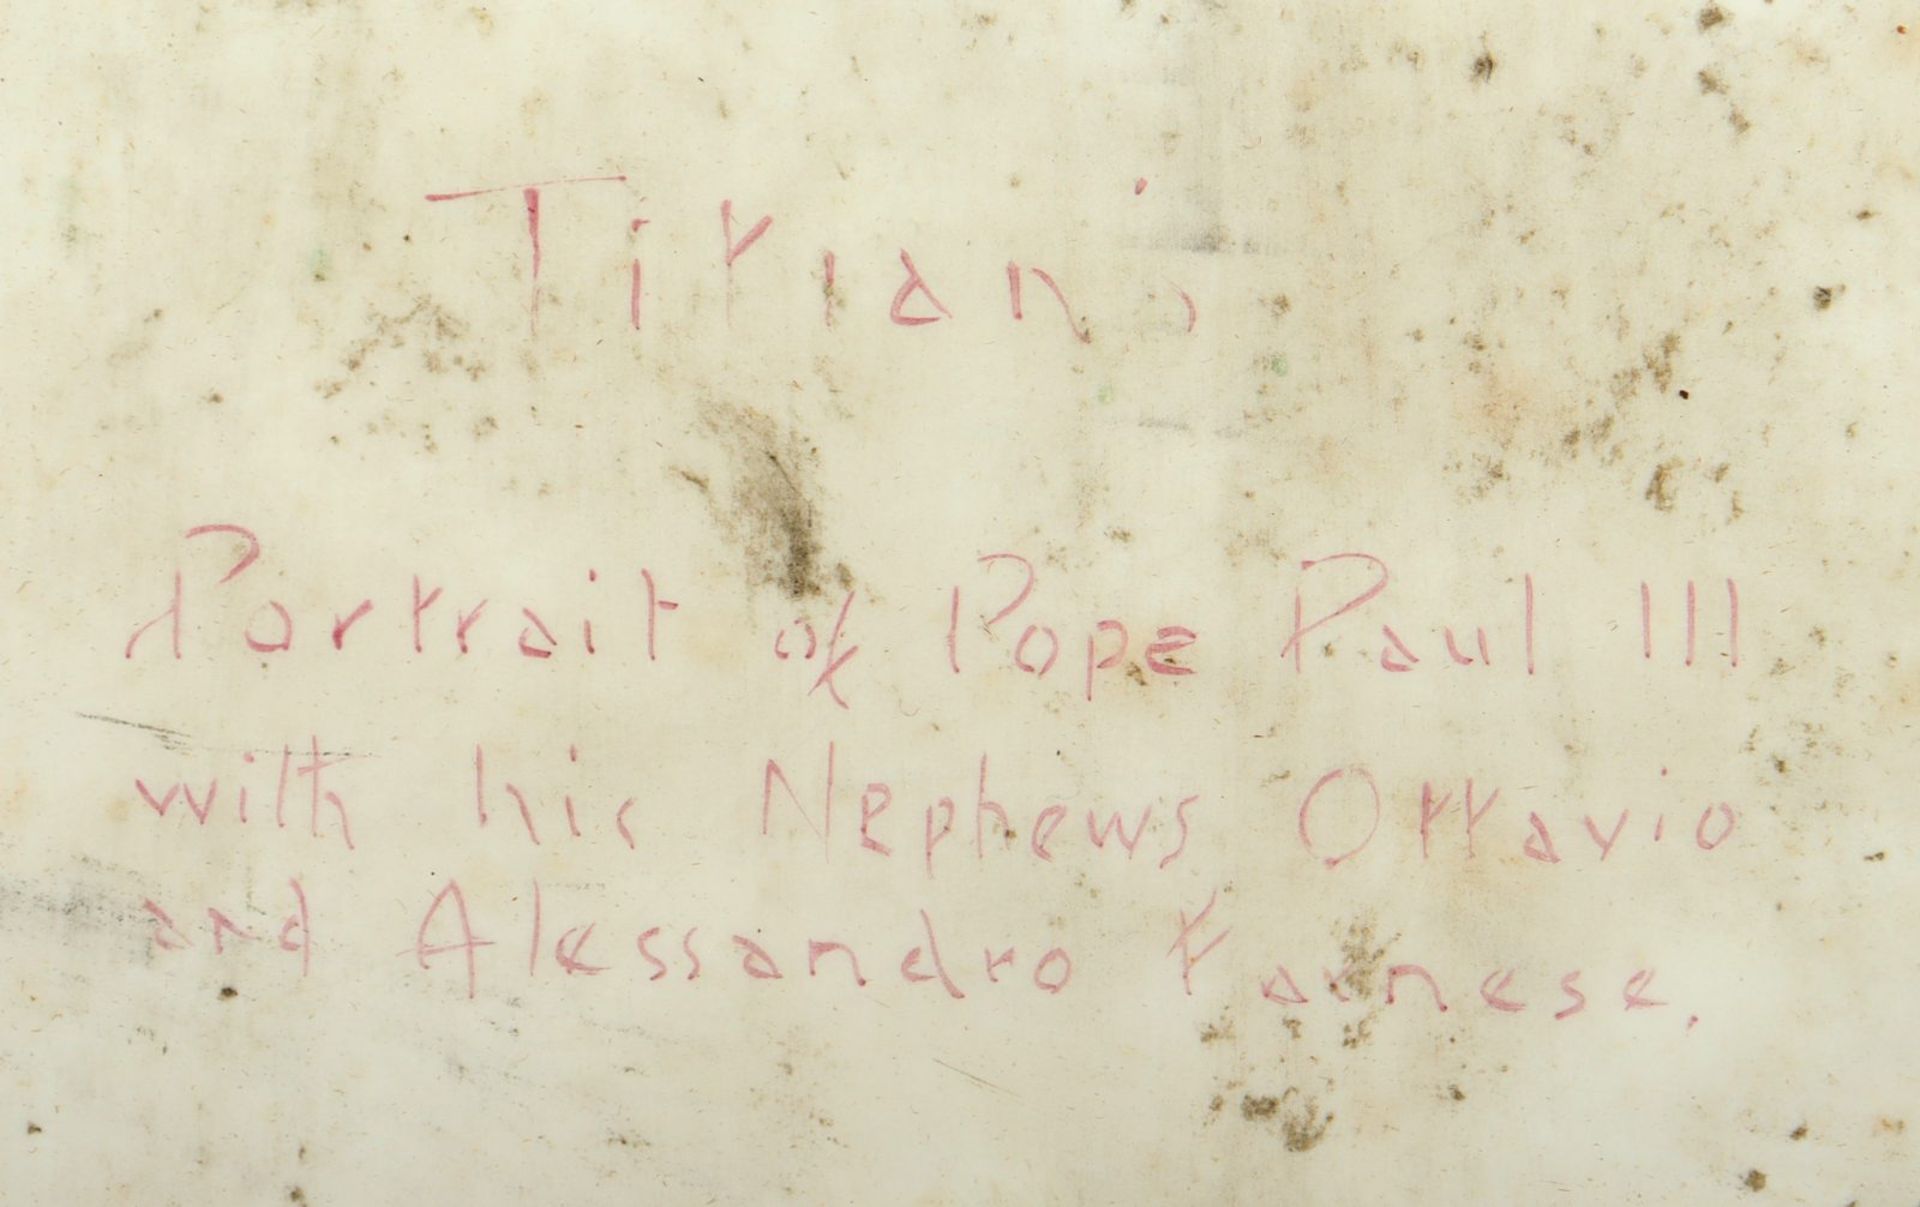 Titian;
Portrait of Pope Paul III
with his Nephews Ottavio
and Alessandro Farnese.